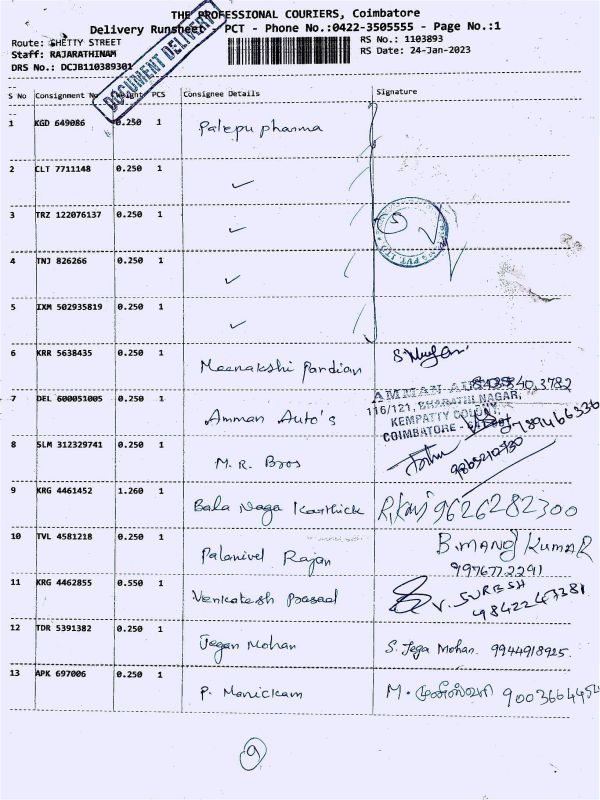 THE PROFESSIONAL COURIERS, Coimbatore
Delivery Runsheet - PCT - Phone No.:0422-3505555 - Page No.:1
Route: SHETTY STREET
RS No.: 1103893
Staff: RAJARATHINAM
RS Date: 24-Jan-2023
DRS No.: DCJB110389301
DOCUMENT DELIVERY
S No Consignment No Weight PCS Consignee Details Signature
1 KGD 649086 0.250 1 Palepu pharma
2 CLT 7711148 0.250 1 ✓
3 TRZ 122076137 0.250 1 ✓
4 TNJ 826266 0.250 1 ✓
5 IXM 502935819 0.250 1 ✓
6 KRR 5638435 0.250 1 Meenakshi Pandian
7 DEL 600051005 0.250 1 Amman Auto's
AMMAN
116/121, BHARATHI NAGAR,
KEMPATTY COLONY,
COIMBATORE -
8 SLM 312329741 0.250 1 M.R. Bros
9 KRG 4461452 1.260 1 Bala Naga Karthick R.Kavi 9626282300
10 TVL 4581218 0.250 1 Palanivel Rajan B.MANOJ KUMAR
9976772291
11 KRG 4462855 0.550 1 Venkatesh prasad V. SURESH
9842247381
12 TDR 5391382 0.250 1 Jegan Mohan S. Jega Mohan. 9944918925.
13 APK 697006 0.250 1 P. Manickam M.
9